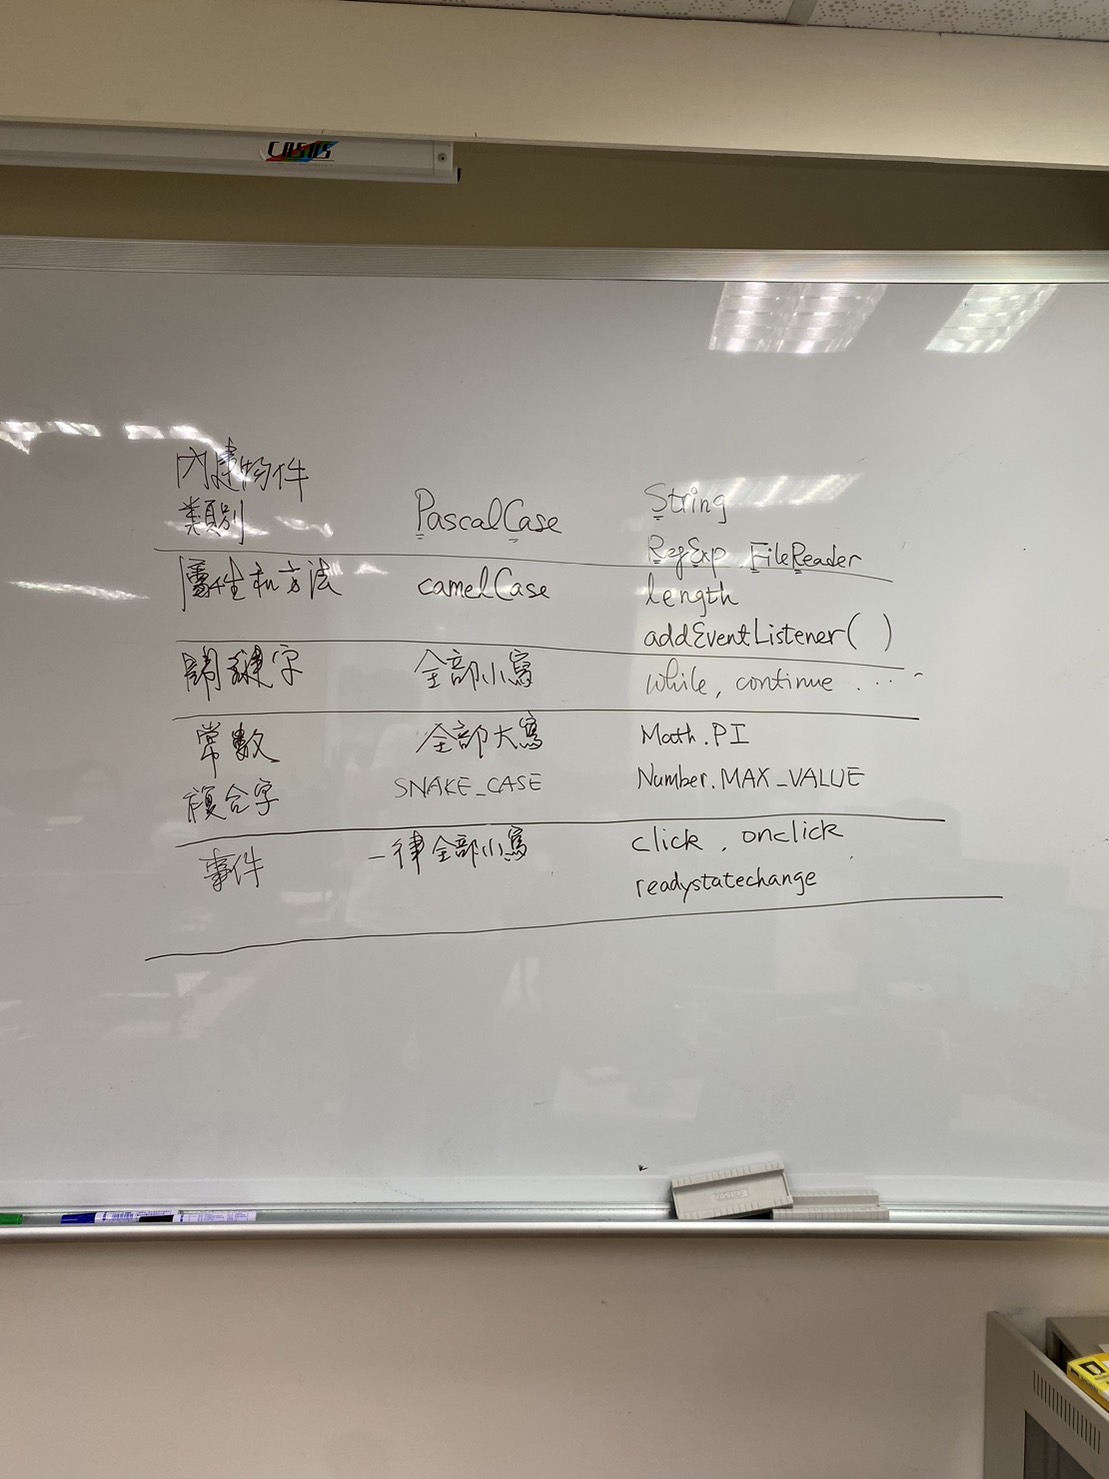 內建物件
類別 PascalCase String
RegExp FileReader
屬性和方法 camelCase length
addEventListener( )
關鍵字 全部小寫 while, continue ....
常數 全部大寫 Math.PI
複合字 SNAKE_CASE Number.MAX_VALUE
事件 一律全部小寫 click, onclick
readystatechange